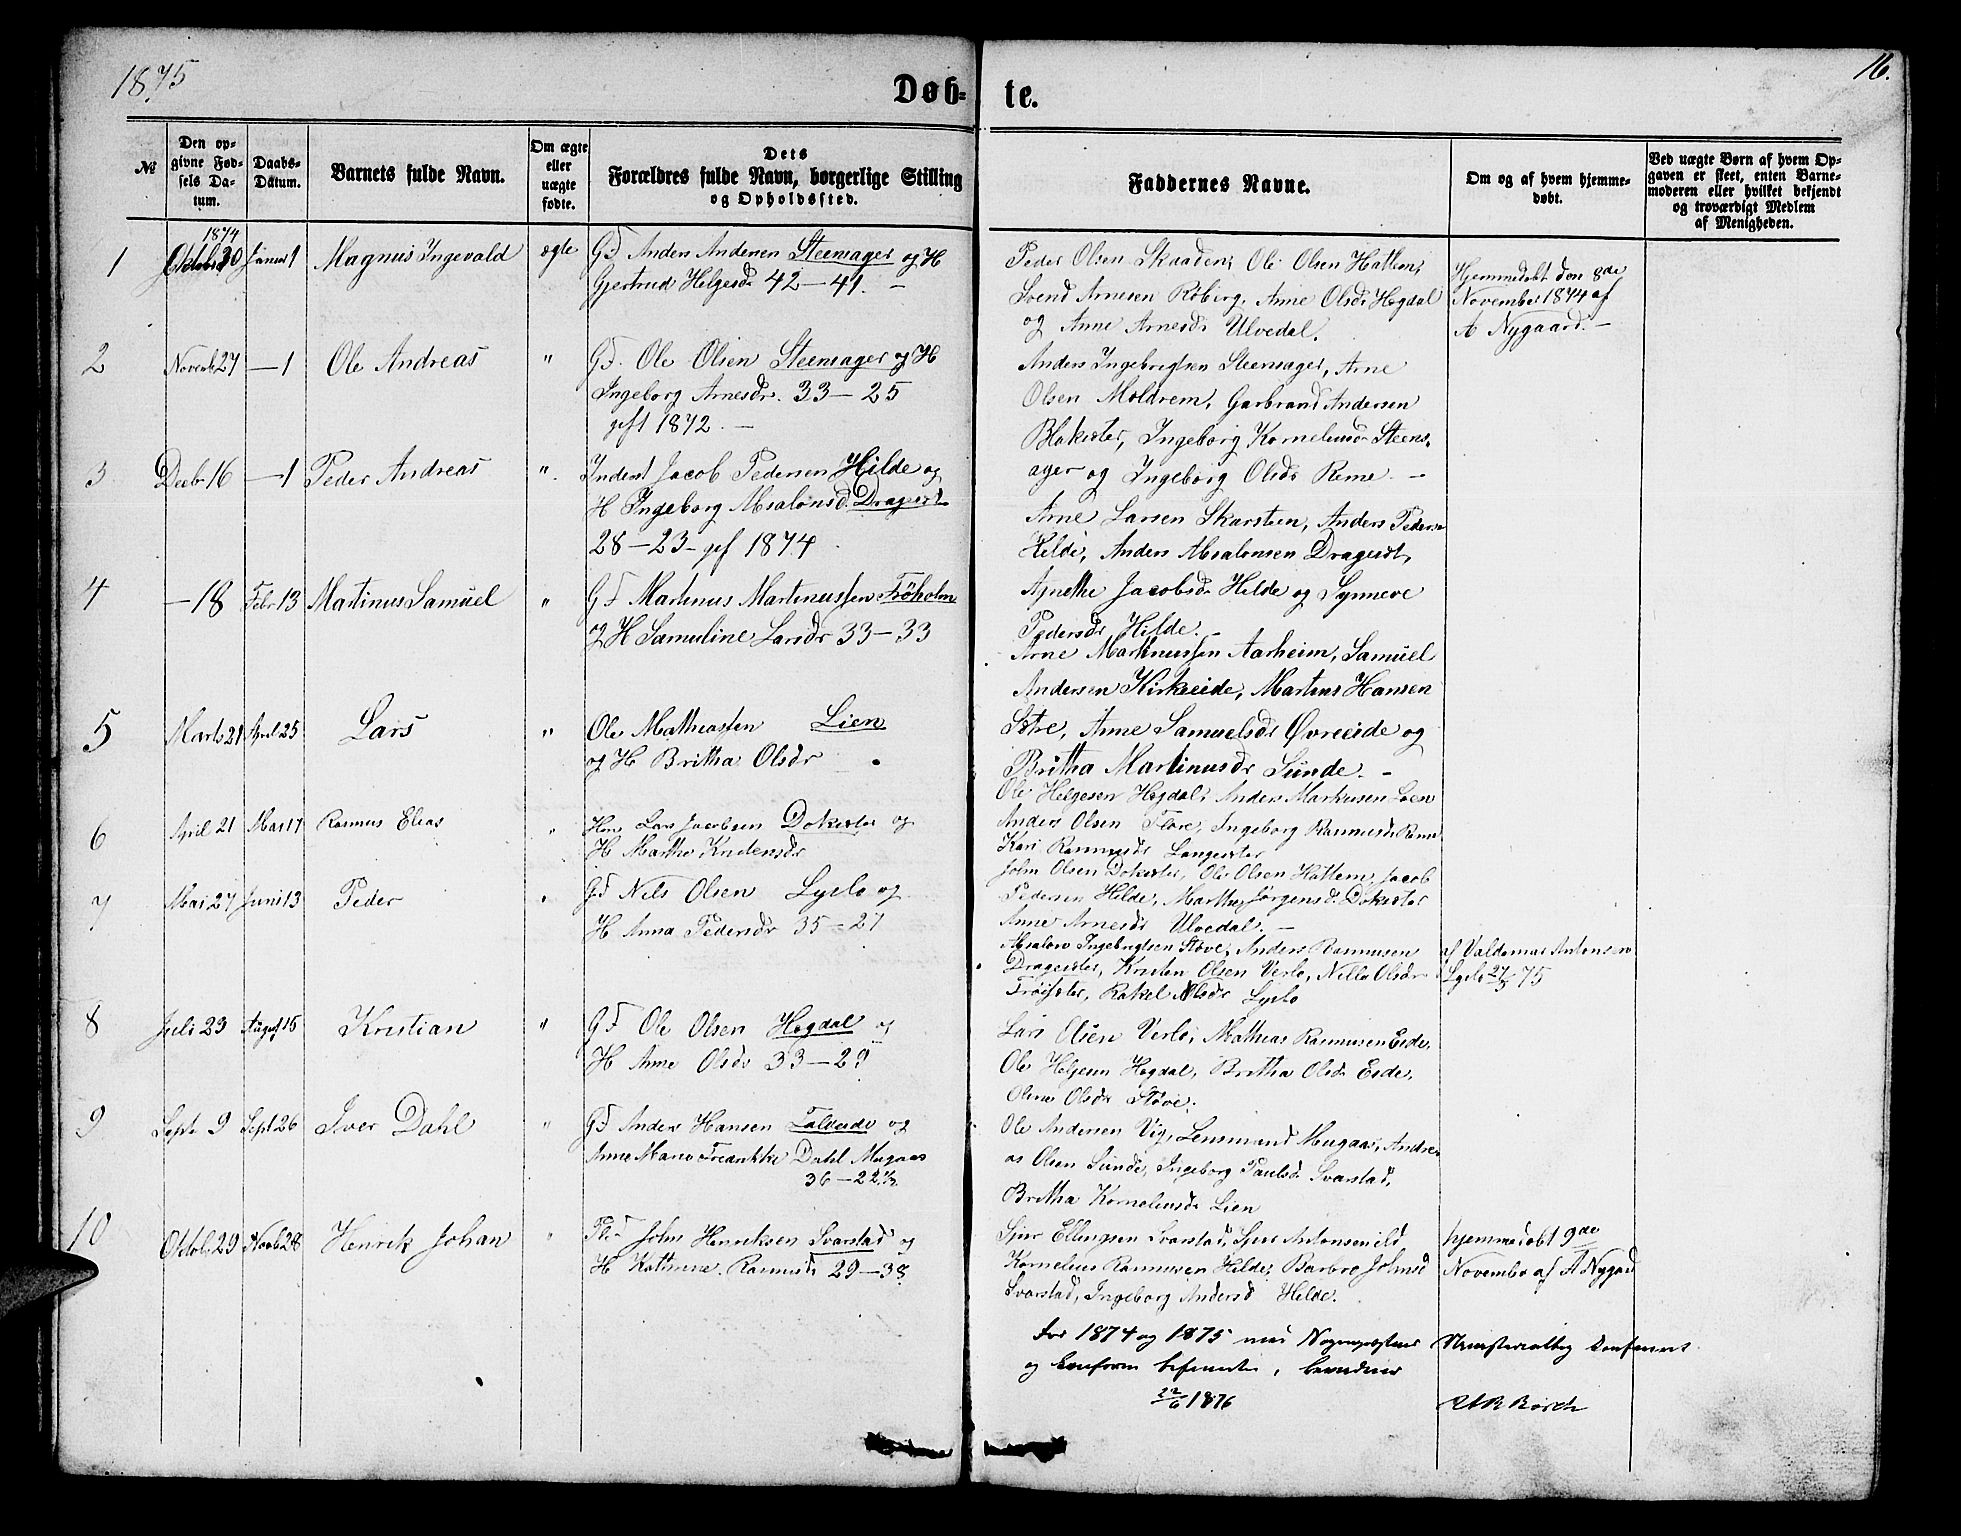 1875
Døb-
te.
16.
№
Den op-
givne Fød-
sels Da-
tum.
Daabs-
Datum.
Barnets fulde Navn.
Om ægte
eller
uægte
fødte.
Dets
Forældres fulde Navn, borgerlige Stilling
og Opholdssted.
Faddernes Navne.
Om og af hvem hjemme-
døbt.
Ved uægte Børn af hvem Op-
gaven er skeet, enten Barne-
moderen eller hvilket bekjendt
og troværdigt Medlem
af Menigheden.
1874
1 Oktober 30 Januar 1 Magnus Ingevald ægte Gd Anders Andersen Steensager og H
Gjertrud Helgesdr 42 – 41. –
Peder Olsen Skaaden, Ole Olsen Hattem,
Svend Arnesen Röberg, Anne Olsdr Hogdal
og Anne Arnesdr Ulvedal.
Hjemmedøbt den 8de
November 1874 af
A Nygaard. –
2 Novemb 27 — 1 Ole Andreas " Gd. Ole Olsen Steensager og H
Ingeborg Arnesdr. 33 – 25
gift 1872. –
Anders Ingebrigtsen Steensager, Arne
Olsen Moldrem, Garbrand Andersen
Blakseter, Ingeborg Korneliusdr Steens-
ager og Ingeborg Olsdr Reme. –
3 Decbr 16 — 1 Peder Andreas " Inderst Jacob Pedersen Hilde og
H Ingeborg Absalonsd. Dragset
28 – 23 – gift 1874.
Arne Larsen Skarsteen, Anders Peders.
Hilde, Anders Absalonsen Dragset,
Agnethe Jacobsdr Hilde og Synneve
Pedersdr Hilde. –
4 — 18 Febr 13 Martinus Samuel " Gd Martinus Martinussen Fröholm
og H Samuline Larsdr 33 – 33
Arne Martinussen Aarheim, Samuel
Andersen Kirkeeide, Martinus Hansen
Sætre, Anne Samuelsdr Øvreeide og
Britha Martinusdr Sunde. –
5 Marts 21 April 25 Lars " Ole Mathiassen Lien
og H Britha Olsdr
Ole Helgesen Hogdal, Anders Markusen Loen
Anders Olsen Flore, Ingeborg Rasmusdr Reme
Kari Rasmusdr Langeseter
6 April 21 Mai 17 Rasmus Elias " Hm Lars Jacobsen Dokseter og
H Marthe Knudensdr
John Olsen Dokseter, Ole Olsen Hattem, Jacob
Pedersen Hilde, Marthe Jørgensd. Dokseter
Anne Arnesdr Ulvedal. –
7 Mai 27 Juni 13 Peder " Gd Nils Olsen Lyslo og
H Anna Pedersdr 35 – 27
Absalon Ingebrigtsen Støve, Anders Rasmusen
Dragseter, Kristen Olsen Verlo, Nille Olsdr
Frøiseter, Rakel Olsdr Lyslo
af Valdemar Antonsen
Lyslo 27/5 75
8 Juli 23 August 15 Kristian " Gd Ole Olsen Hogdal og
H Anne Olsdr 33 – 29
Lars Olsen Verlo, Mathias Rasmusen Eide,
Ole Helgesen Hogdal, Britha Olsdr Eide,
Oline Olsdr Støve.
9 Septr 9 Sept 26 Iver Dahl " Gd Anders Hansen Tolveide og
Anne Marie Fredrikke Dahl Mugaas
36 – 22 1/2
Ole Andersen Vig, Lensmand Mugaas, Andre-
as Olsen Sunde, Ingeborg Paulsdr Svarstad,
Britha Korneliusdr Lien
10 Octob. 29 Novb 28 Henrik Johan " Pld John Henriksen Svarstad og
H Kathrine Rasmusdr 29 – 38
Sjur Ellingsen Svarstad, Sjur Antonsen ibid
Kornelius Rasmusen Hilde, Barbro Johnsd
Svarstad, Ingeborg Andersd Hilde.
hjemmedøbt 9de
Novembr af A Nygaard
For 1874 og 1875 med Sogneprestens Ministerialbog konfereret
og konform befunden, bevidner
22/6 1876